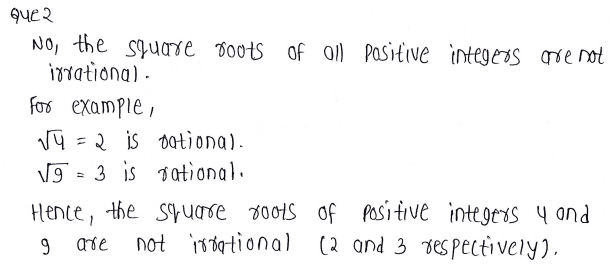 Que 2
No, the square roots of all positive integers are not
irrational.
For example,
√4 = 2 is rational.
√9 = 3 is rational.
Hence, the square roots of positive integers 4 and
9 are not irrational (2 and 3 respectively).